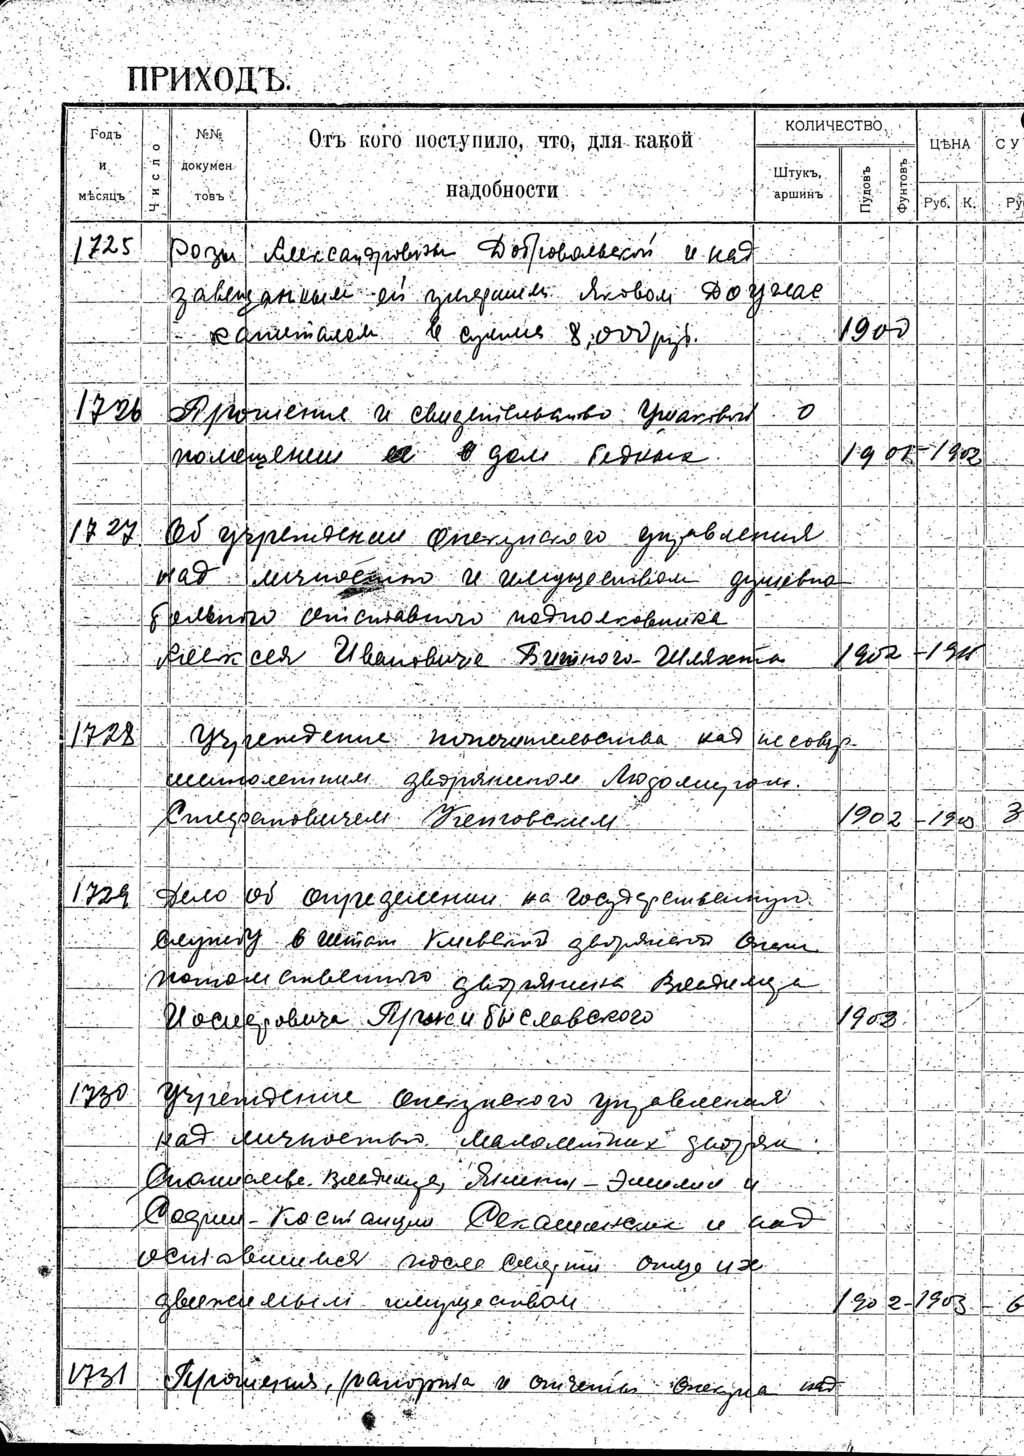 ПРИХОДЪ.
Годъ и мѣсяцъ
Число
№№ документовъ
Отъ кого поступило, что, для какой надобности
КОЛИЧЕСТВО
Штукъ, аршинъ
Пудовъ
Фунтовъ
ЦѢНА
Руб. К.
СУ
Ру
1725 Розы Александровны Добровольской и над
завещанным ей умершим Яковом Доужас
капиталом в сумме 8,000 руб. 1900
1726 Прошение и свидетельство Ушаковой о
помещении ея в дом бедных. 1901-1902
1727 Об учреждении опекунского управления
над личностью и имуществом душевно
больного отставного подполковника
Алексея Ивановича Витного-Шляхта 1902-19
1728 Учреждение попечительства над несовер-
шеннолетним дворянином Людомиром
Стефановичем 1902-1903 3
1729 Дело об определении на государственную
службу в штат Киевской дворянской Опеки
потомственного дворянина Владимира
Иосифовича Пржибыславского 1903
1730 Учреждение опекунского управления
над личностью малолетних дворян
Станислава-Владимира, Янины-Эмилии и
Софии-Констанции и над
оставшимся после смерти отца их
движимым имуществом 1902-1903 - 6
1731 Прошения, рапорта и отчеты опекуна над